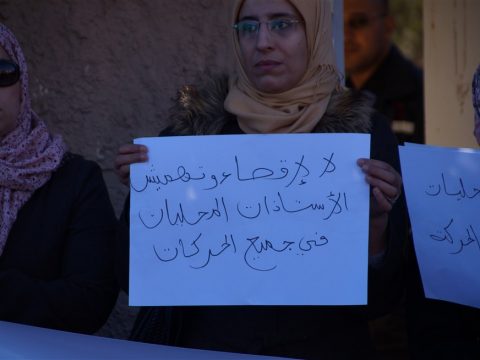 لا لإقصاء وتهميش
الأستاذات المحليات
في جميع الحركات
محليات
الحركة